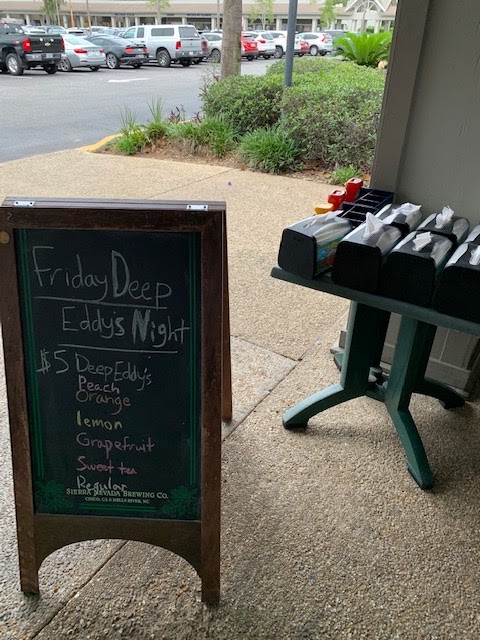 Friday Deep
Eddy's Night
$5 Deep Eddy's
Peach
Orange
lemon
Grapefruit
Sweet tea
Regular
SIERRA NEVADA BREWING CO.
CHICO, CA & MILLS RIVER, NC